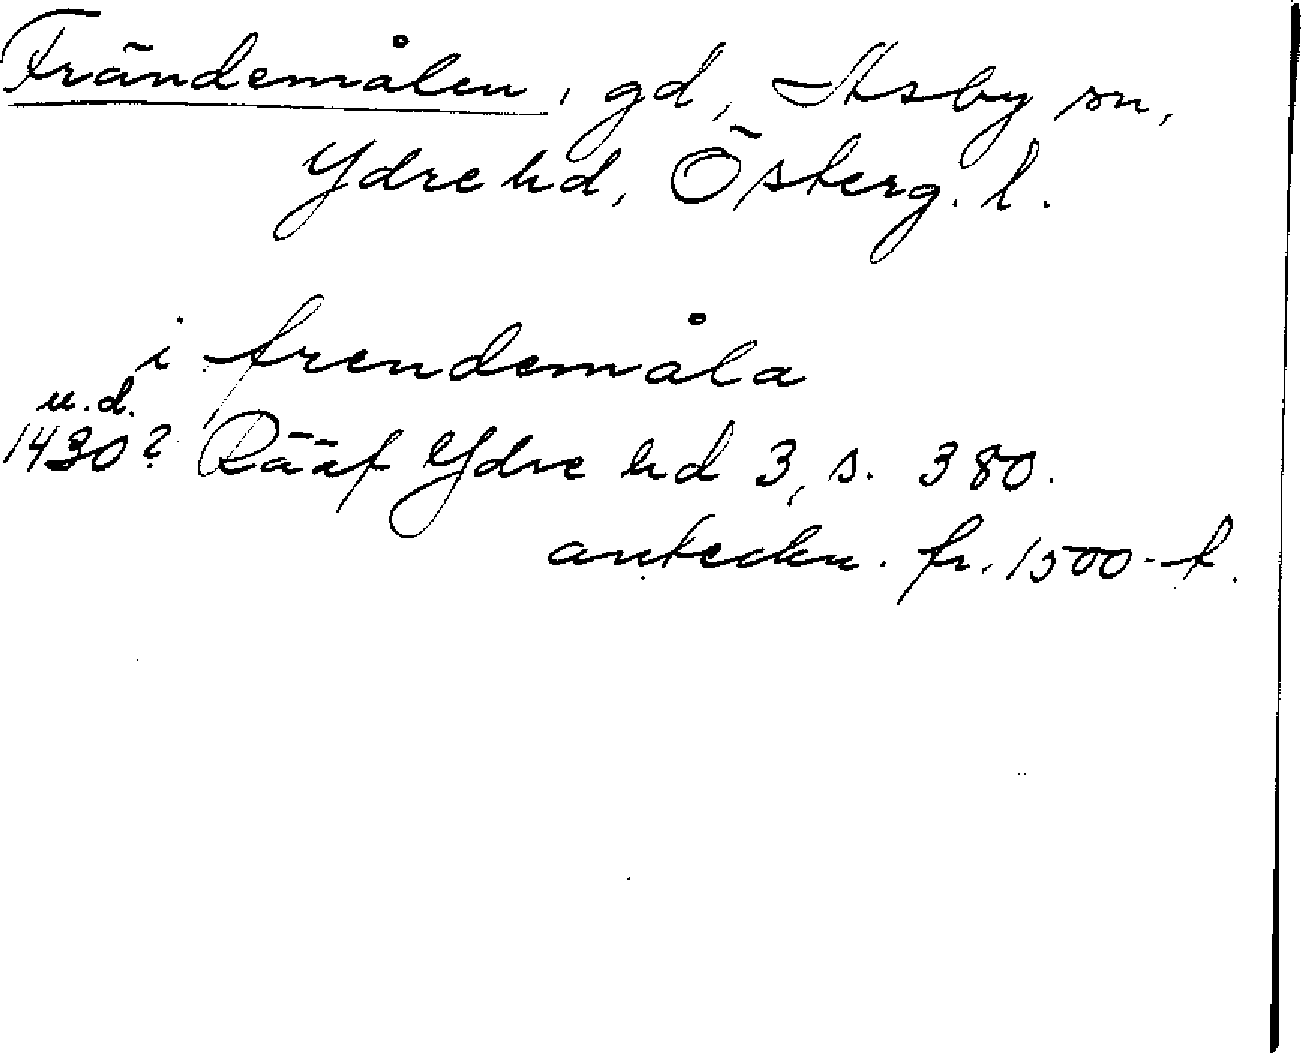 Frändemålen, gd, Asby sn,
Ydre hd, Österg. l.
i frendemåla
u.d.
1430? Rääf Ydre hd 3, s. 380.
anteckn. fr. 1500-t.